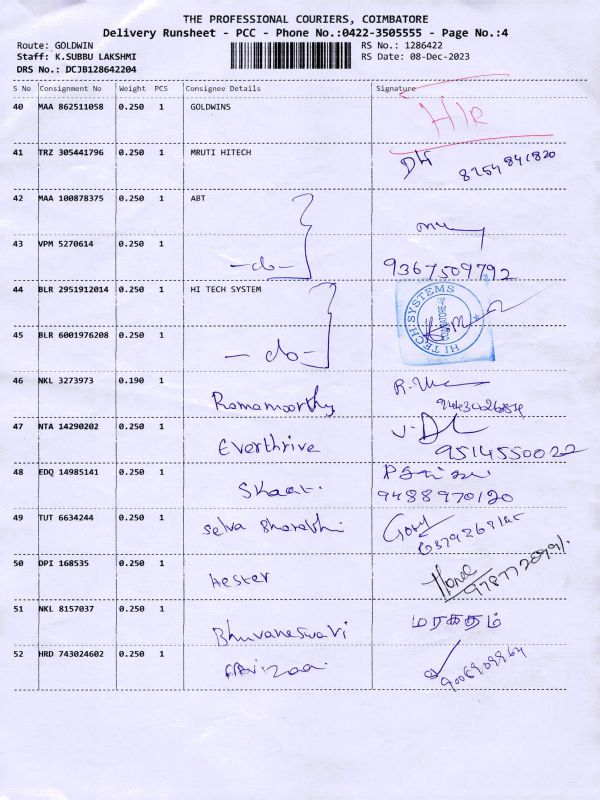 THE PROFESSIONAL COURIERS, COIMBATORE
Delivery Runsheet - PCC - Phone No.:0422-3505555 - Page No.:4
Route: GOLDWIN RS No.: 1286422
Staff: K.SUBBU LAKSHMI RS Date: 08-Dec-2023
DRS No.: DCJB128642204
S No Consignment No Weight PCS Consignee Details Signature
40 MAA 862511058 0.250 1 GOLDWINS
41 TRZ 305441796 0.250 1 MRUTI HITECH
8254841820
42 MAA 100878375 0.250 1 ABT
43 VPM 5270614 0.250 1
-do-
9367509792
44 BLR 2951912014 0.250 1 HI TECH SYSTEM
HI TECH SYSTEMS
45 BLR 6001976208 0.250 1
-do-
46 NKL 3273973 0.190 1
Ramamoorthy
47 NTA 14290202 0.250 1
Everthrive 9514550022
48 EDQ 14985141 0.250 1
Skaat. 9488970120
49 TUT 6634244 0.250 1
Selva Bharathi
50 DPI 168535 0.250 1
Hester
51 NKL 8157037 0.250 1
Bhuvaneswari மரகதம்
52 HRD 743024602 0.250 1